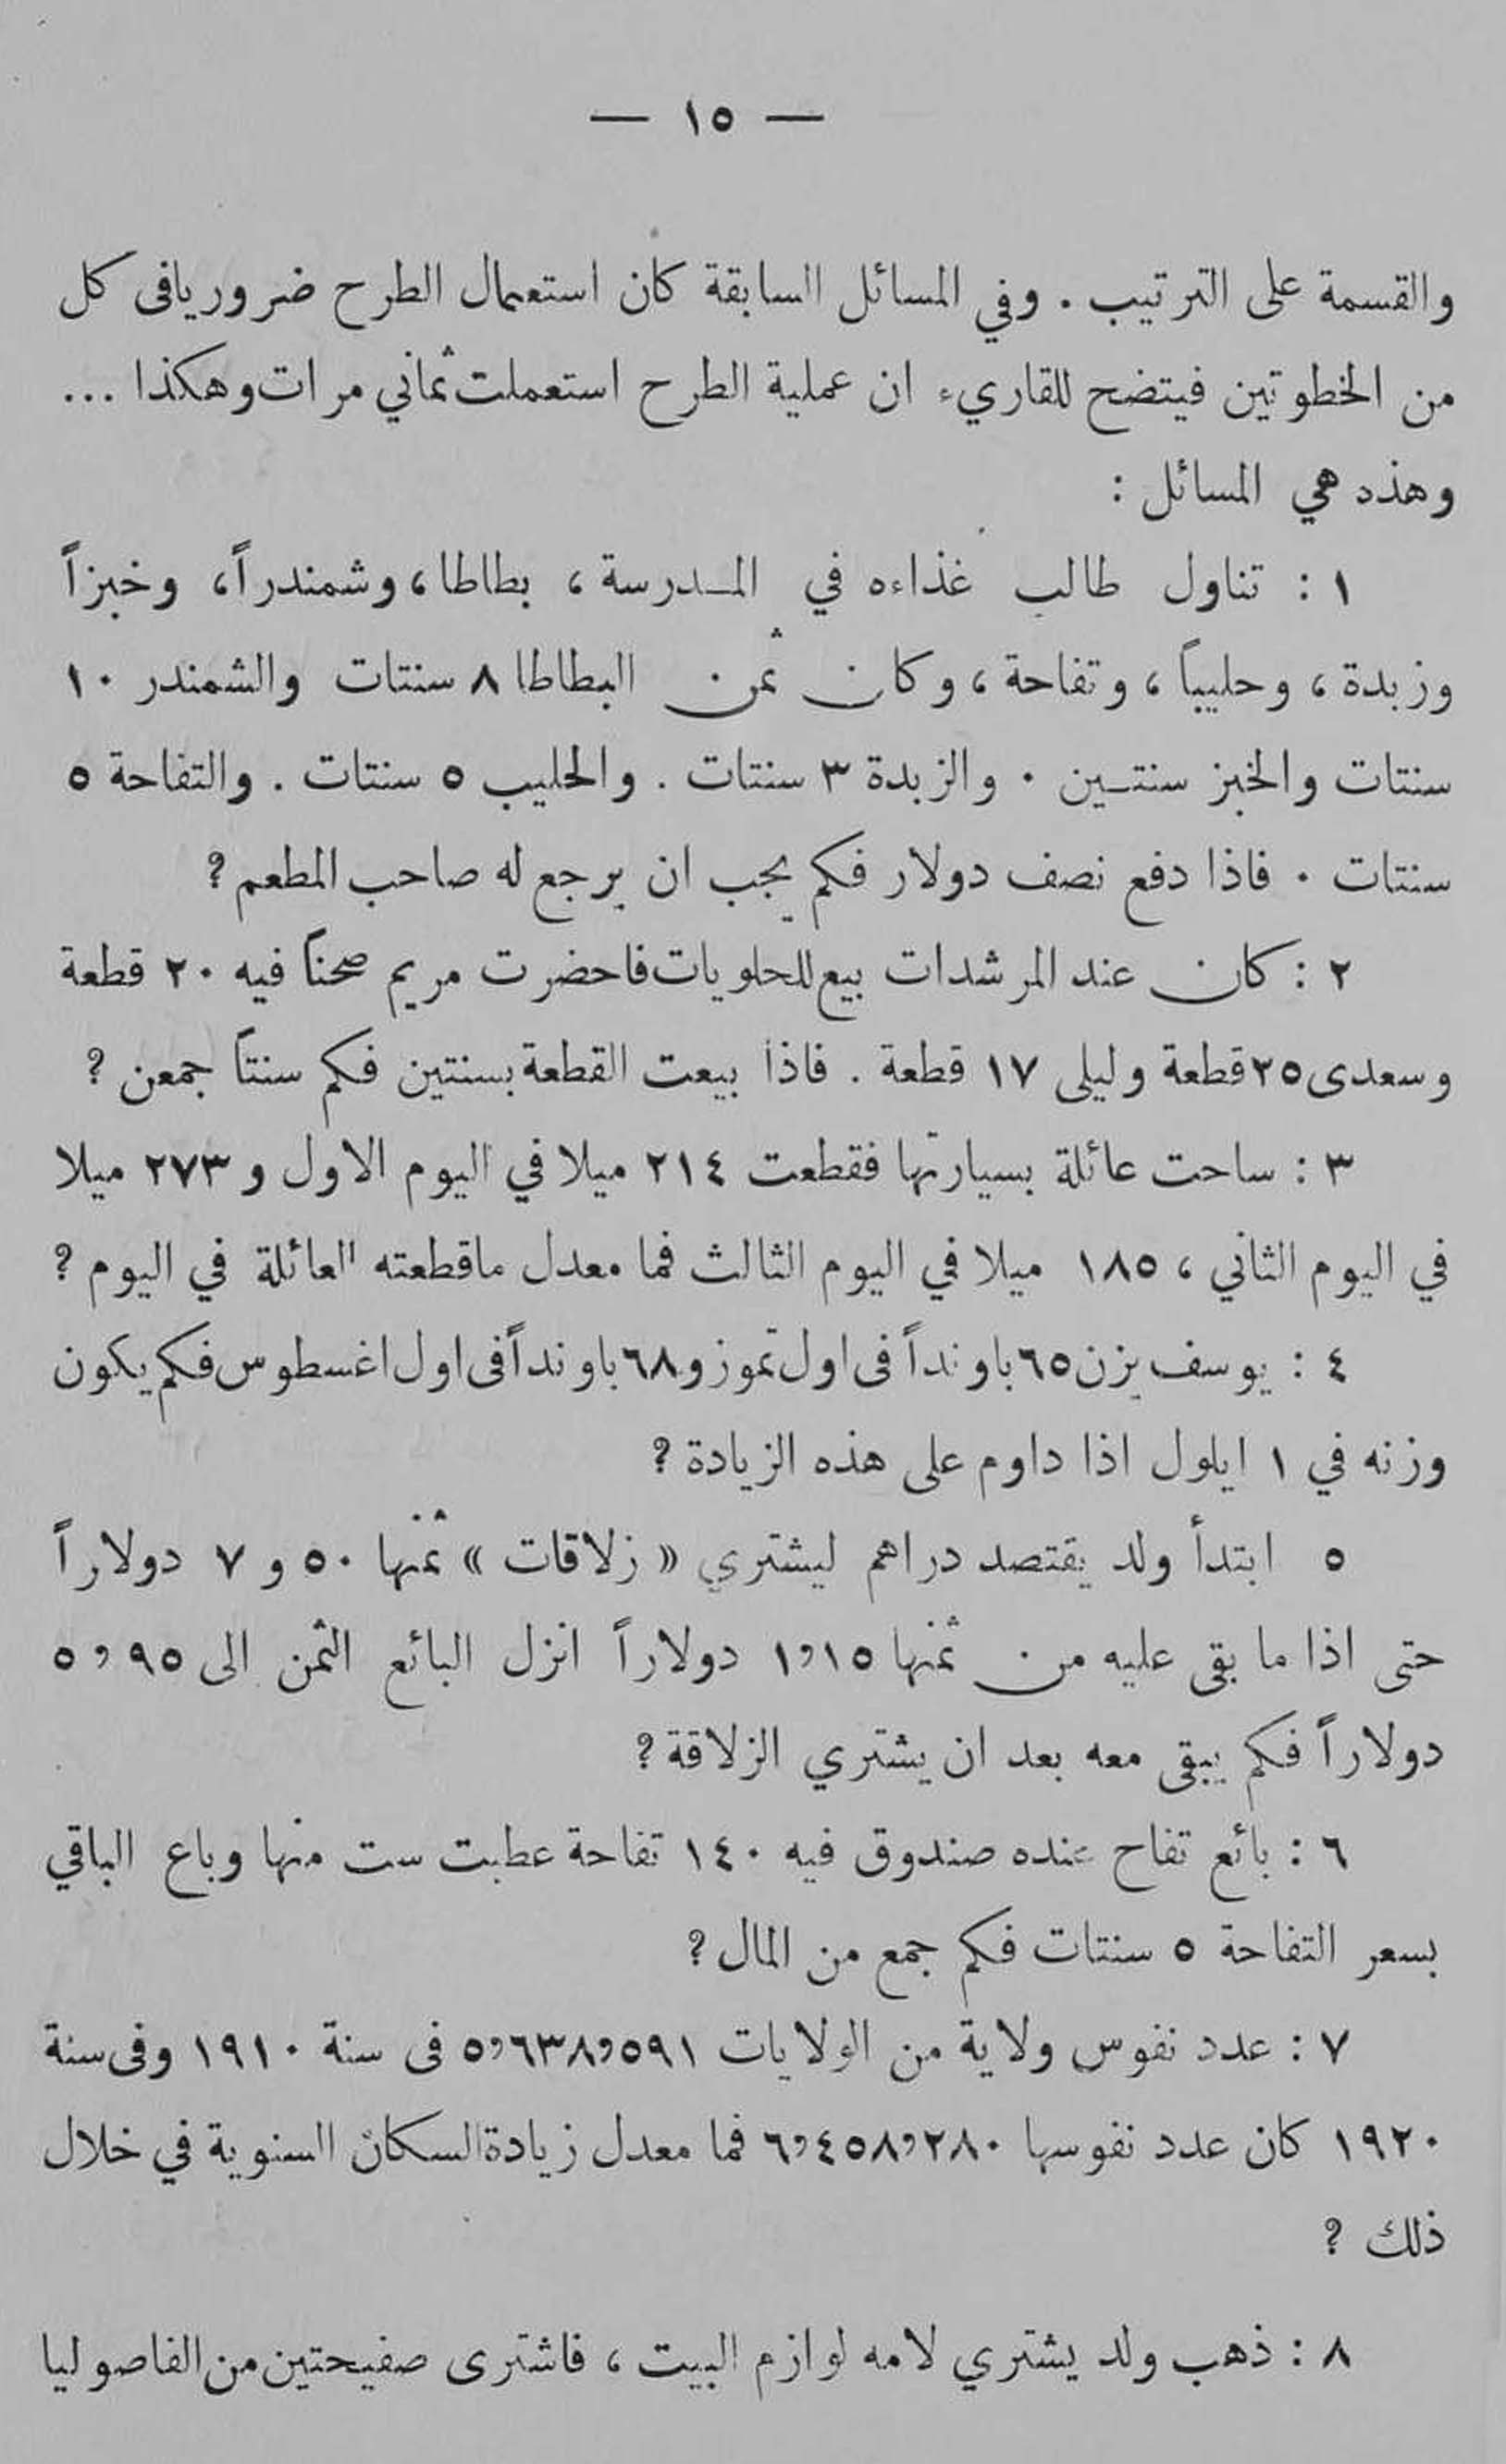 — ١٥ —
والقسمة على الترتيب . وفي المسائل السابقة كان استعمال الطرح ضروريا فى كل
من الخطوتين فيتضح للقاريء ان عملية الطرح استعملت ثماني مرات وهكذا ...
وهذه هي المسائل :
١ : تناول طالب غذاءه في المدرسة ، بطاطا ، وشمندراً ، وخبزاً
وزبدة ، وحليباً ، وتفاحة ، وكان ثمن البطاطا ٨ سنتات والشمندر ١٠
سنتات والخبز سنتين . والزبدة ٣ سنتات . والحليب ٥ سنتات . والتفاحة ٥
سنتات . فاذا دفع نصف دولار فكم يجب ان يرجع له صاحب المطعم ?
٢ : كان عند المرشدات بيع للحلويات فاحضرت مريم صحناً فيه ٢٠ قطعة
وسعدى ٢٥ قطعة وليلى ١٧ قطعة . فاذا بيعت القطعة بسنتين فكم سنتاً جمعن ?
٣ : ساحت عائلة بسيارتها فقطعت ٢١٤ ميلا في اليوم الاول و ٢٧٣ ميلا
في اليوم الثاني ، ١٨٥ ميلا في اليوم الثالث فما معدل ماقطعته العائلة في اليوم ?
٤ : يوسف يزن ٦٥ باونداً فى اول تموز و ٦٨ باونداً فى اول اغسطوس فكم يكون
وزنه في ١ ايلول اذا داوم على هذه الزيادة ?
٥ ابتدأ ولد يقتصد دراهم ليشتري « زلاقات » ثمنها ٥٠ و ٧ دولاراً
حتى اذا ما بقى عليه من ثمنها ١٫١٥ دولاراً انزل البائع الثمن الى ٥٫٩٥
دولاراً فكم يبقى معه بعد ان يشتري الزلاقة ?
٦ : بائع تفاح عنده صندوق فيه ١٤٠ تفاحة عطبت ست منها وباع الباقي
بسعر التفاحة ٥ سنتات فكم جمع من المال ?
٧ : عدد نفوس ولاية من الولايات ٥٫٦٣٨٫٥٩١ فى سنة ١٩١٠ وفى سنة
١٩٢٠ كان عدد نفوسها ٦٫٤٥٨٫٢٨٠ فما معدل زيادة السكان السنوية في خلال
ذلك ?
٨ : ذهب ولد يشتري لامه لوازم البيت ، فاشترى صفيحتين من الفاصوليا